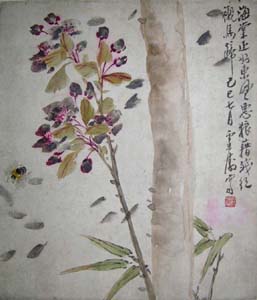 海棠正好東風惡狼藉殘紅
襯馬蹄 己巳七月